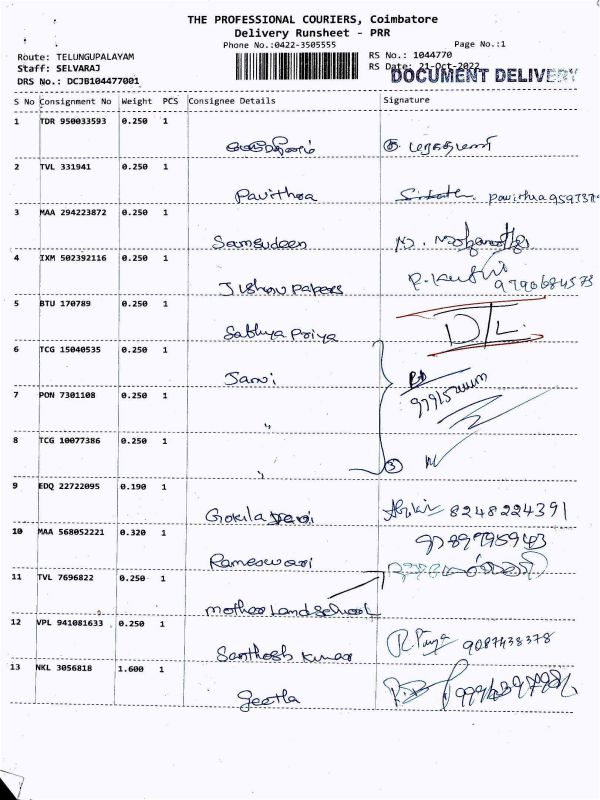 THE PROFESSIONAL COURIERS, Coimbatore
Delivery Runsheet - PRR
Phone No.:0422-3505555 Page No.:1
Route: TELUNGUPALAYAM RS No.: 1044770
Staff: SELVARAJ RS Date: 21-Oct-2022
DOCUMENT DELIVERY
DRS No.: DCJB104477001
S No Consignment No Weight PCS Consignee Details Signature
1 TDR 950033593 0.250 1
2 TVL 331941 0.250 1
Pavithra
3 MAA 294223872 0.250 1
Samsudeen
4 IXM 502392116 0.250 1
Jishnu papers 9790684573
5 BTU 170789 0.250 1
Sathya Priya D/L.
6 TCG 15040535 0.250 1
Janvi
7 PON 7301108 0.250 1
"
8 TCG 10077386 0.250 1
" 3
9 EDQ 22722095 0.190 1
Gokila Devi 8248224391
10 MAA 568052221 0.320 1
Rameswari
11 TVL 7696822 0.250 1
mother Land School
12 VPL 941081633 0.250 1
Santhosh Kumar R. Priya 9087438378
13 NKL 3056818 1.600 1
Geetha